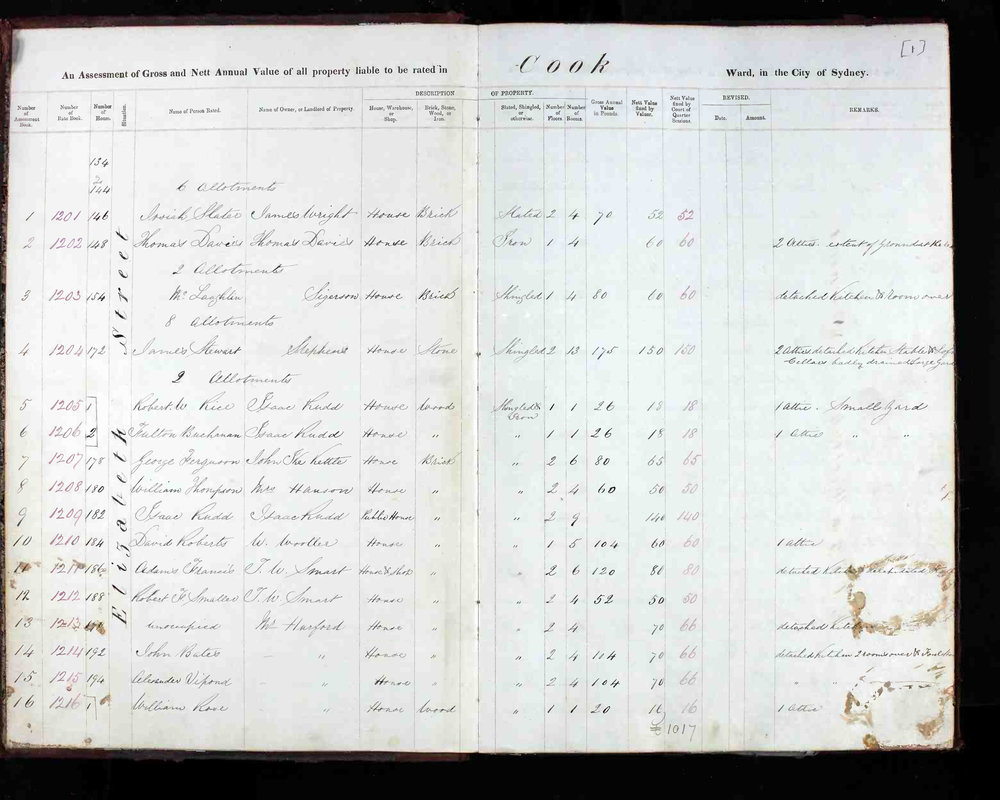 [1]
An Assessment of Gross and Nett Annual Value of all property liable to be rated in Cook Ward, in the City of Sydney.
DESCRIPTION OF PROPERTY.
REVISED.
Number of Assessment Book. Number of Rate Book. Number of House. Situation. Name of Person Rated. Name of Owner, or Landlord of Property. House, Warehouse, or Shop. Brick, Stone, Wood, or Iron. Slated, Shingled, or otherwise. Number of Floors. Number of Rooms. Gross Annual Value in Pounds. Nett Value fixed by Valuer. Nett Value fixed by Court of Quarter Sessions. Date. Amount. REMARKS.
Elizabeth Street
134
144 6 Allotments
1 1201 146 Josiah Slater James Wright House Brick Slated 2 4 70 52 52
2 1202 148 Thomas Davies Thomas Davies House Brick Iron 1 4 60 60 2 Attics. extent of
2 Allotments
3 1203 154 Mc Laughlin Sigerson House Brick Shingled 1 4 80 60 60 detached Kitchen & room over
8 Allotments
4 1204 172 James Stewart Stephens House Stone Shingled 2 13 175 150 150 2 Attics detached Kitchen Stable &
Cellars badly drained Large
2 Allotments
5 1205 1 Robert W Rice Isaac Rudd House Wood Shingled & Iron 1 1 26 18 18 1 Attic. Small Yard
6 1206 2 Fulton Buchanan Isaac Rudd House " " 1 1 26 18 18 1 Attic " "
7 1207 178 George Ferguson John Kettle House Brick " 2 6 80 65 65
8 1208 180 William Thompson Mrs Hanson House " " 2 4 60 50 50
9 1209 182 Isaac Rudd Isaac Rudd Public House " " 2 9 140 140
10 1210 184 David Roberts W. Wooller House " " 1 5 104 60 60 1 Attic
11 1211 186 Adam Francis T. W. Smart House & Shop " " 2 6 120 80 80 detached Kitchen
12 1212 188 Robert F Smaller T. W Smart House " " 2 4 52 50 50
13 1213 unoccupied Harford House " " 2 4 70 66 detached Kitchen
14 1214 192 John Bates " House " " 2 4 104 70 66 detached Kitchen 2 rooms over &
15 1215 194 Alexander Vipond " House " " 2 4 104 70 66 " "
16 1216 1 William Rose " House Wood " 1 1 20 16 16 1 Attic
£ 1017